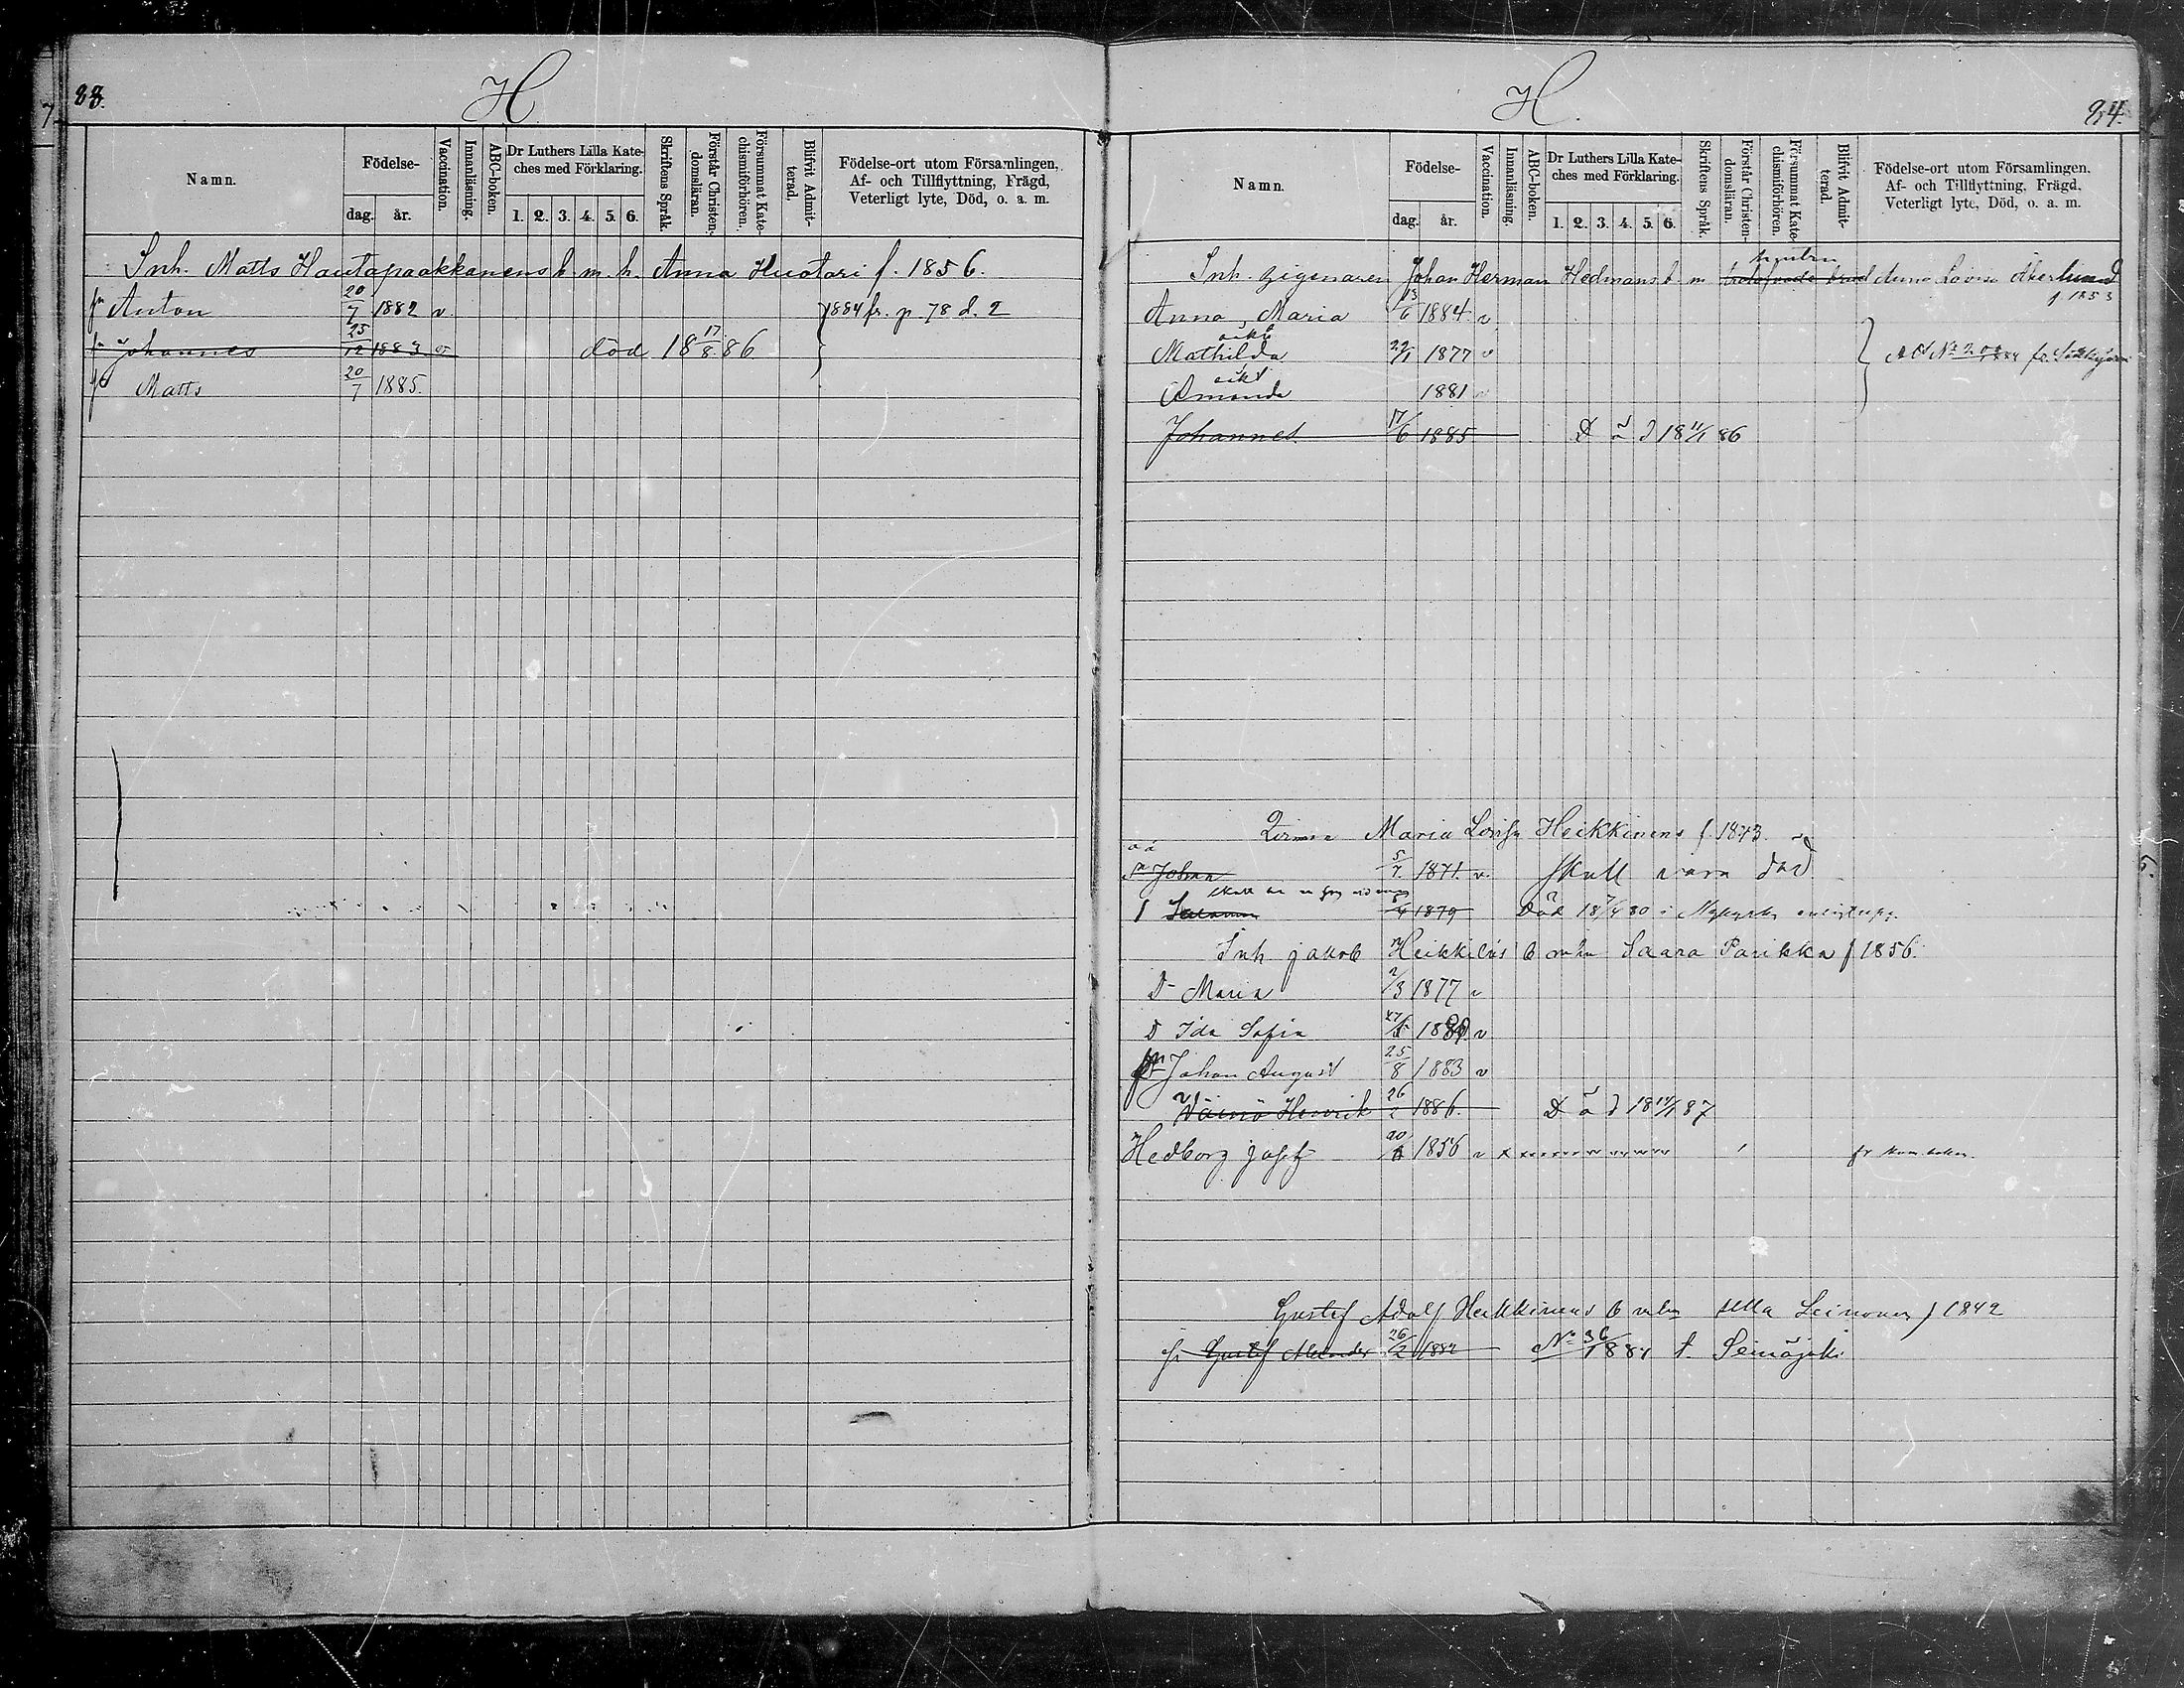 83.
H
Namn.
Födelse-
dag.
år.
Vaccination.
Innanläsning.
ABC-boken.
Dr Luthers Lilla Kate-
ches med Förklaring.
1. 2. 3. 4. 5. 6.
Skriftens Språk.
Förstår Christen-
domsläran.
Försummat Kate-
chismiförhören.
Blifvit Admit-
terad.
Födelse-ort utom Församlingen,
Af- och Tillflyttning, Frägd,
Veterligt lyte, Död, o. a. m.
Inh. Matts Hautapaakkanens b. m. h. Anna Huotari f. 1856.
Anton 20/7 1882 v. 1884 fr. p. 78 d. 2
Johannes 25/12 1883 v död 18 17/8 86
Matts 20/7 1885.
H.
84.
Namn.
Födelse-
dag.
år.
Vaccination.
Innanläsning.
ABC-boken.
Dr Luthers Lilla Kate-
ches med Förklaring.
1. 2. 3. 4. 5. 6.
Skriftens Språk.
Förstår Christen-
domsläran.
Försummat Kate-
chismiförhören.
Blifvit Admit-
terad.
Födelse-ort utom Församlingen,
Af- och Tillflyttning, Frägd,
Veterligt lyte, Död, o. a. m.
hustru
Inh. zigenaren Johan Herman Hedmans b m trolofvade brud Anna Lovisa Åkerlund
f 1853
Anna Maria 13/6 1884 v
oäkt
Mathilda 1877 v
oäkt
Amanda 1881 v
Johannes 17/6 1885 Död 18 11/1 86
Maria Lovisa Heikkinens f. 1843
oä
Johan 5/7 1871. v. skall vara död
1879 Död 18 80 i
Inh Jakob Heikkiläs b m hu Saara Parikka f 1856.
D Maria 2/3 1877 v
D Ida Sofia 1880 v
Johan August 25/8 1883 v
Väinö Henrik 26/2 1886. Död 18 87
Hedborg Josef 1856 v x fr kom.boken.
Gustaf Adolf Heikkinens b m hu Ulla Leinonen f 1842
Gustaf Alexander 26/2 1882 No 36/1884 t. Seinäjoki